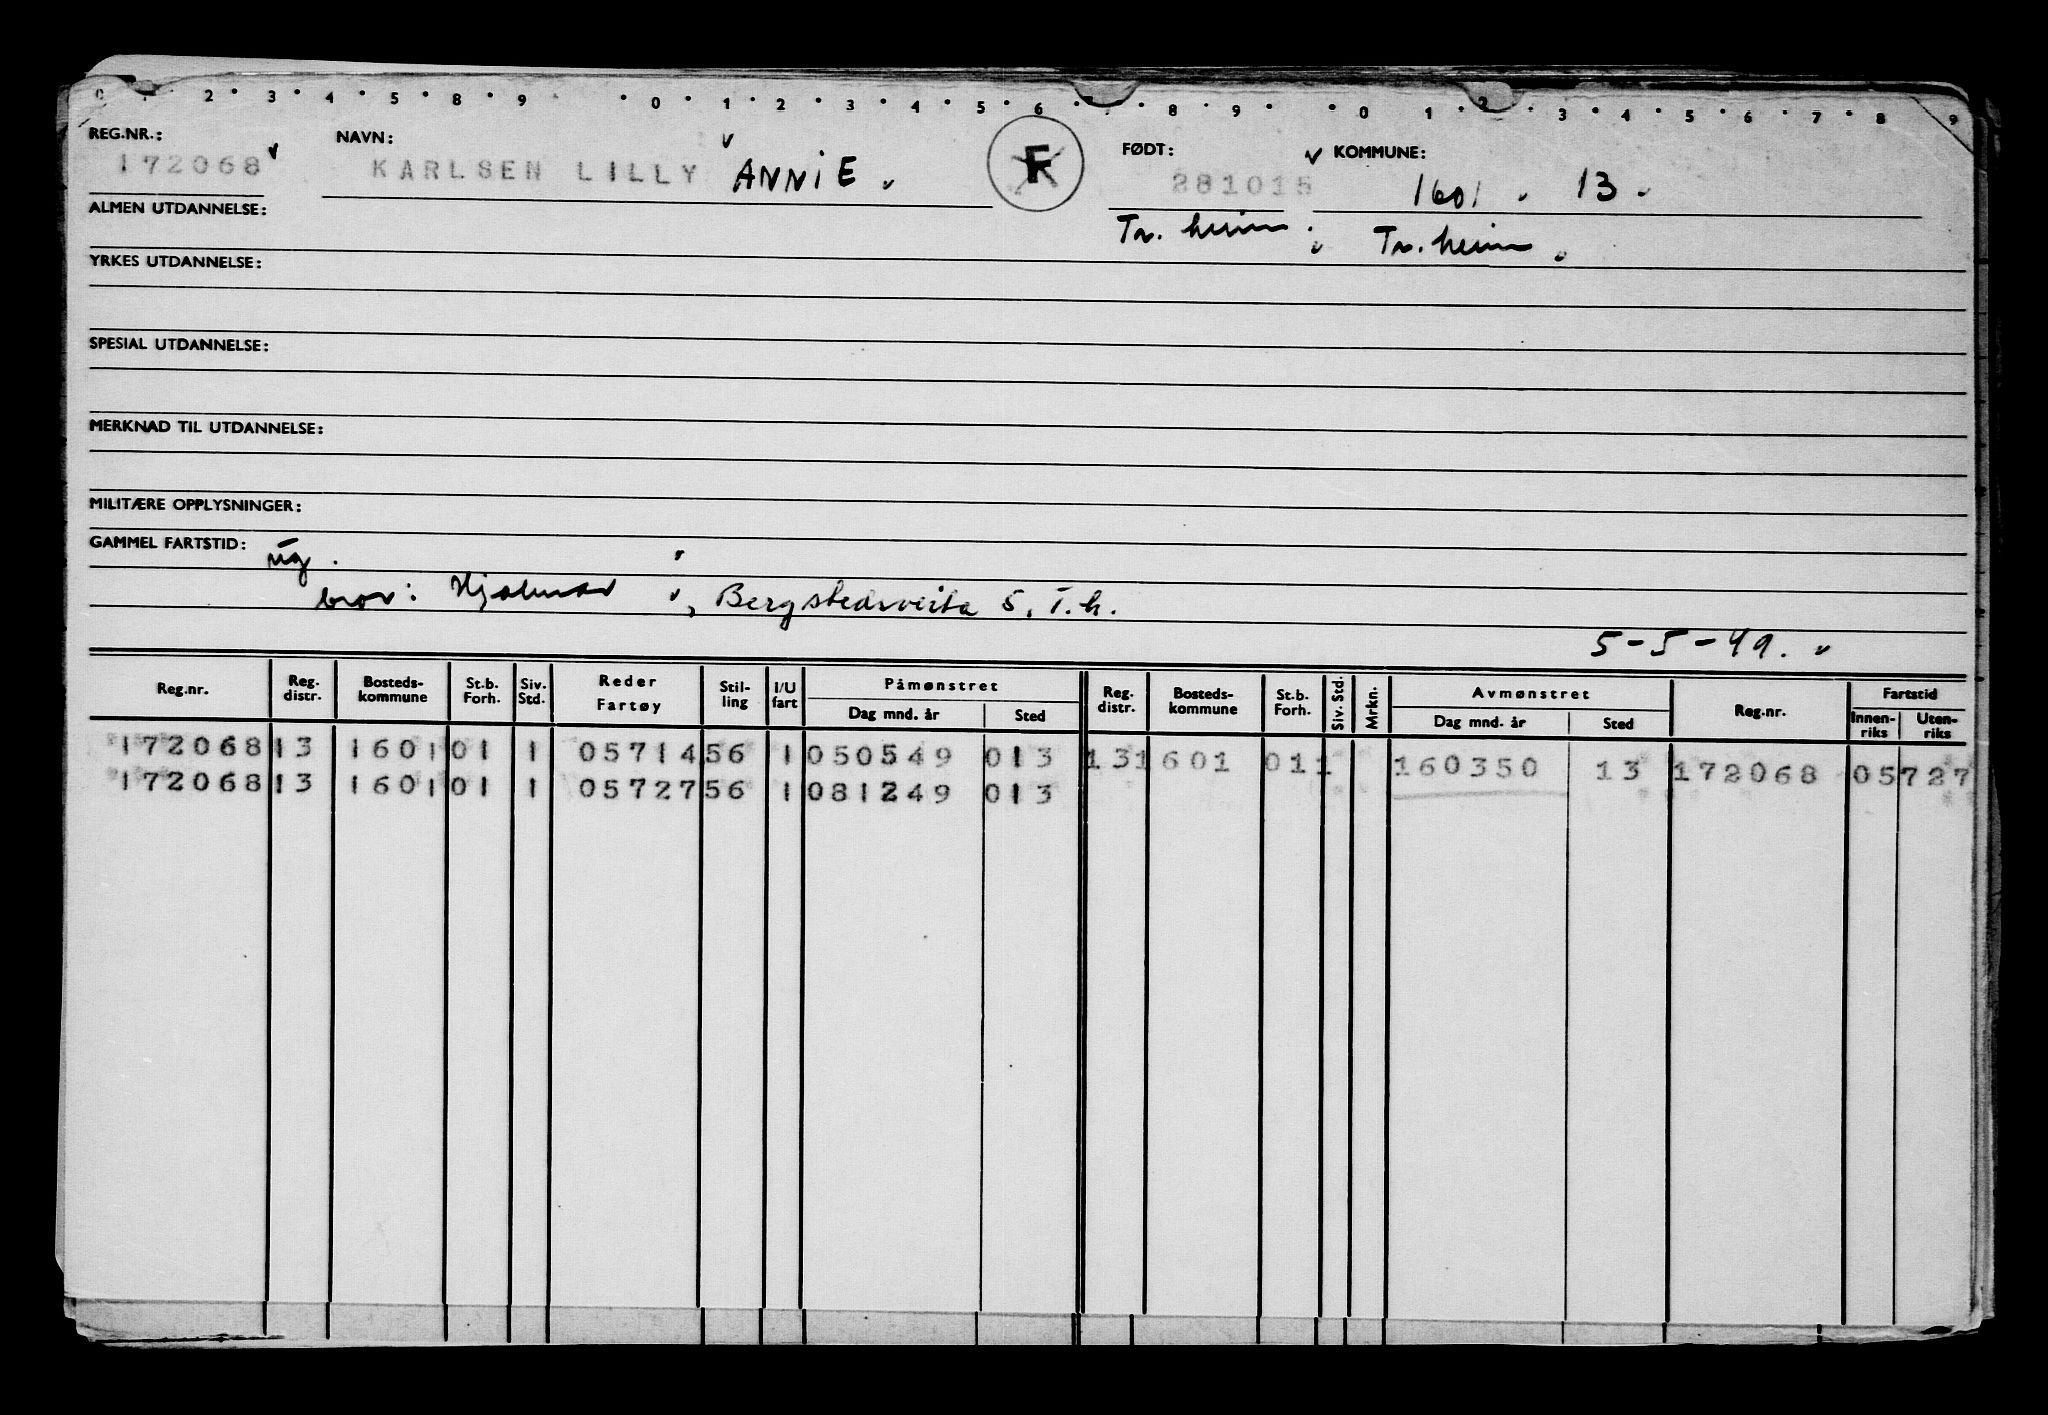 0 1 2 3 4 5 8 9 0 1 2 3 4 5 6 8 9 0 1 2 3 4 5 6 7 8 9
REG.NR.: NAVN: FØDT: KOMMUNE:
172068 KARLSEN LILLY ANNIE F 281015 1601 13
ALMEN UTDANNELSE: Tr. heim Tr. heim
YRKES UTDANNELSE:
SPESIAL UTDANNELSE:
MERKNAD TIL UTDANNELSE:
MILITÆRE OPPLYSNINGER:
GAMMEL FARTSTID:
ug.
bror: Hjalmar ", Bergstedsveita 5, T.h.
5-5-49.
Reg.nr. Reg. distr. Bosteds-kommune St.b. Forh. Siv. Std. Reder Fartøy Stil-ling I/U fart Påmønstret Dag mnd. år Sted Reg. distr. Bosteds-kommune St.b. Forh. Siv. Std. Mrkn. Avmønstret Dag mnd. år Sted Reg.nr. Fartstid Innen-riks Uten-riks
172068 13 1601 01 1 05714 56 1 050549 013 13 1601 01 1 160350 13 172068 05727
172068 13 1601 01 1 05727 56 1 081249 013